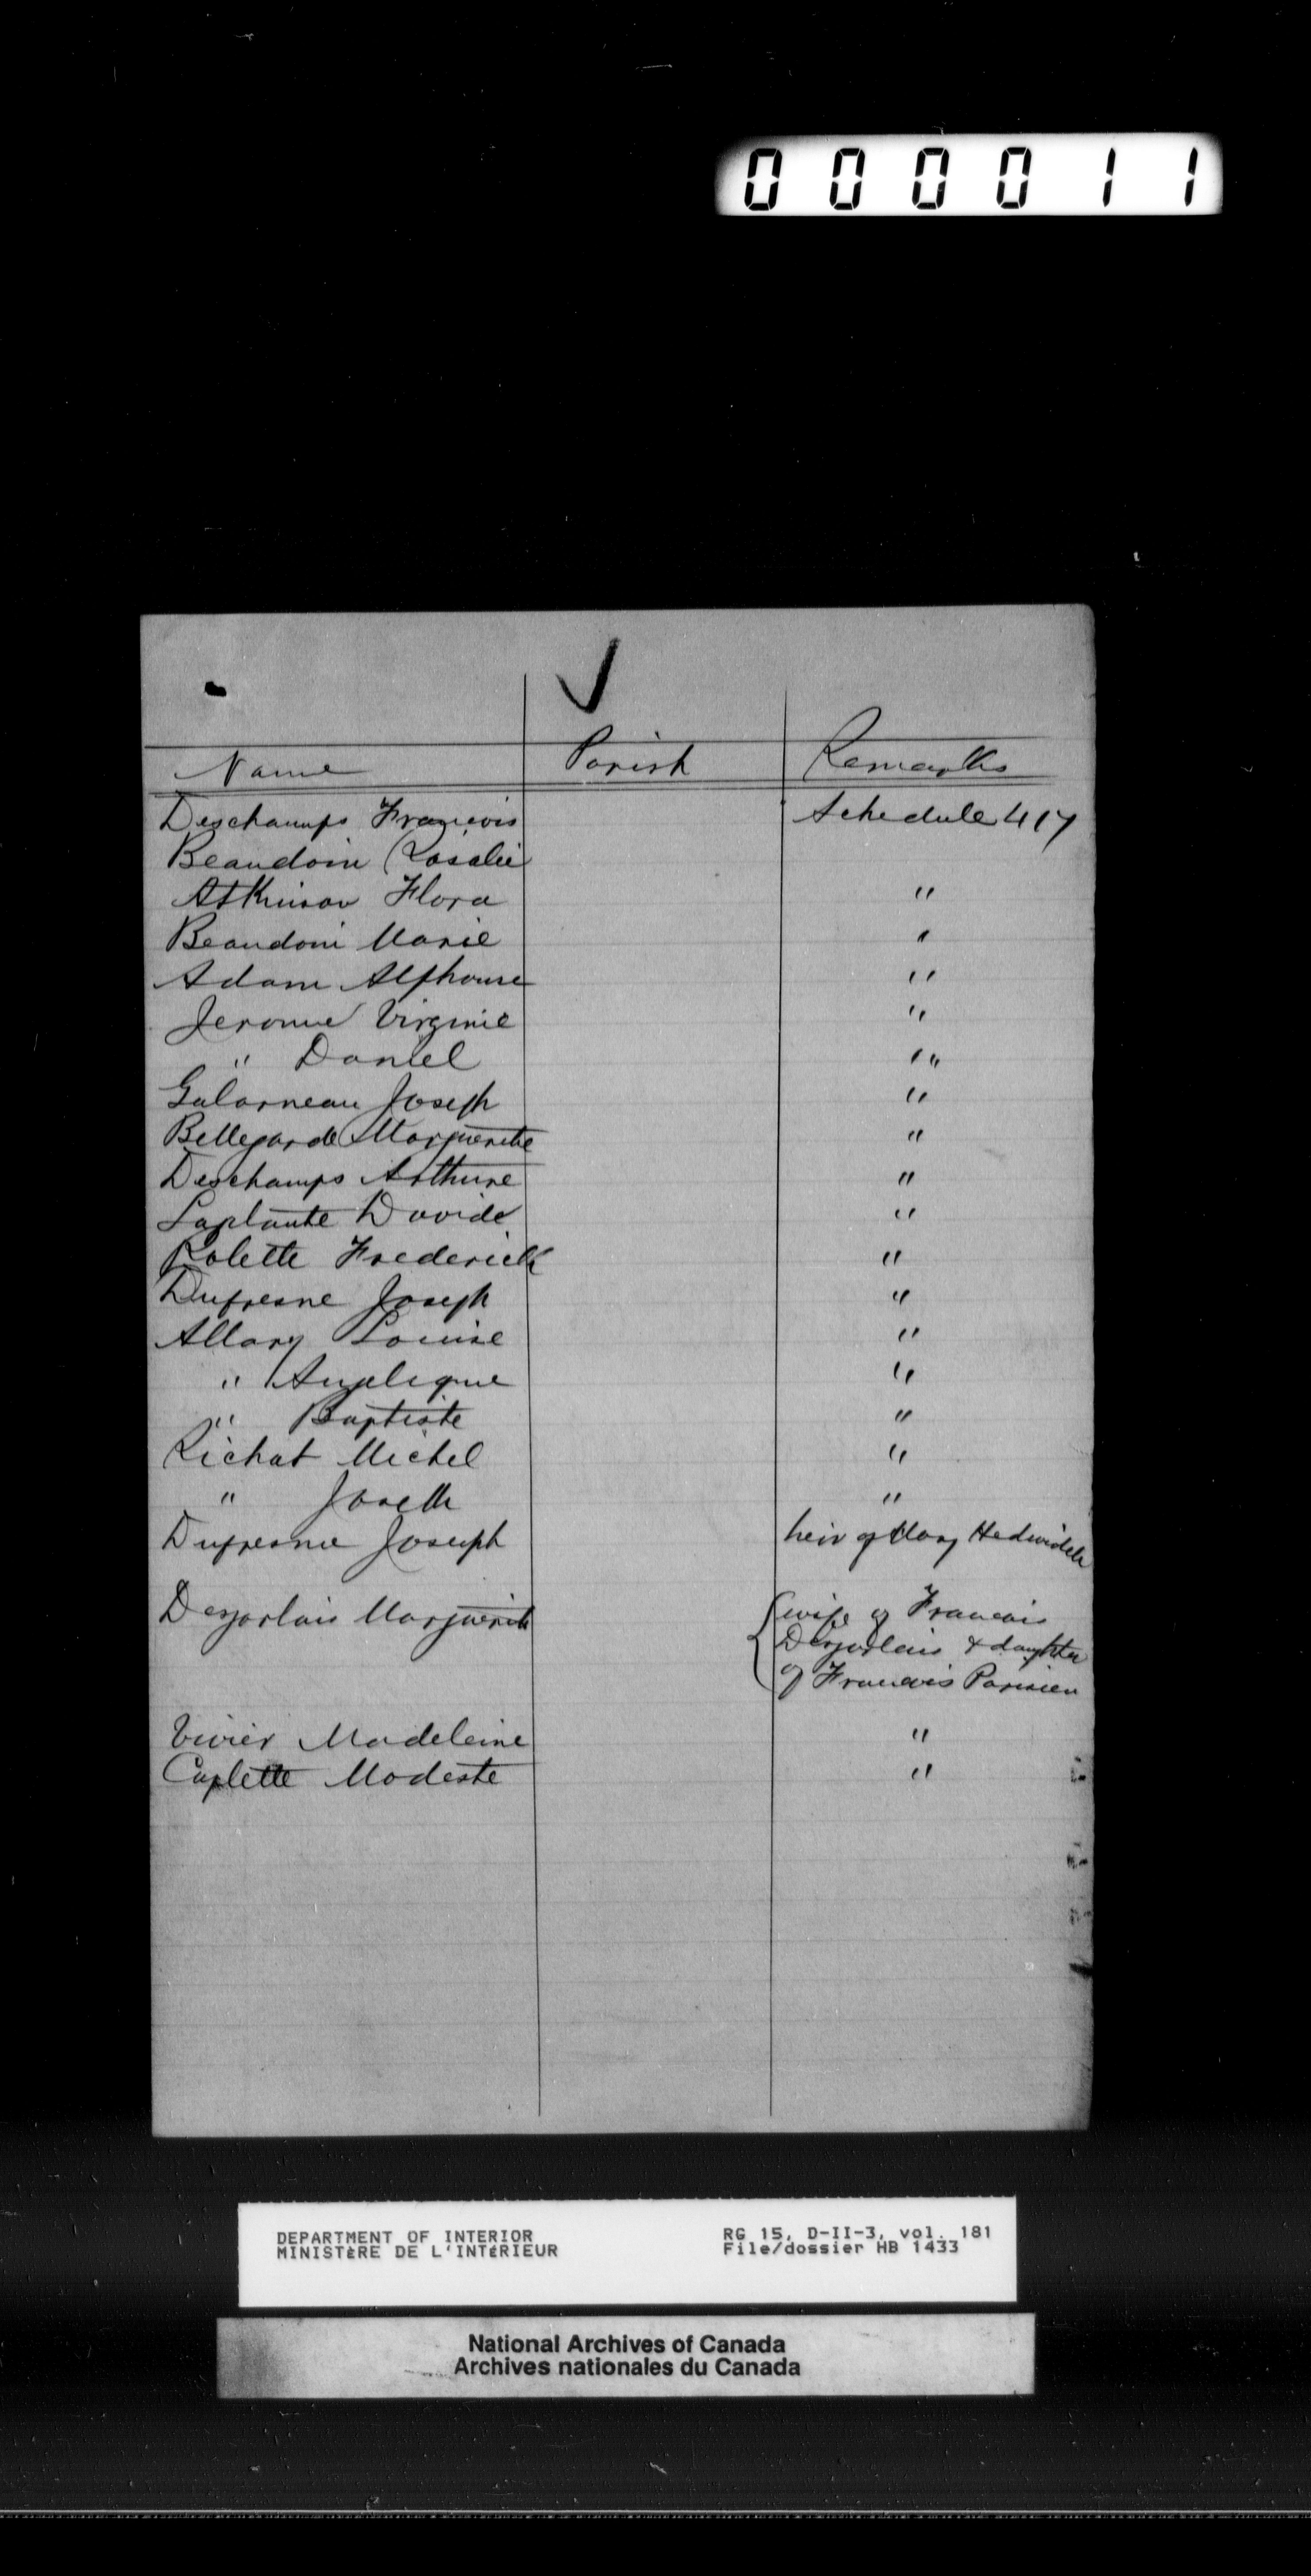 000011
Name Parish Remarks
Deschamps Francois Schedule 417
Beaudoin Rosalie
Atkinson Flora "
Beaudoin Marie "
Adam Alphonse "
Jerome Virginie "
" Daniel "
Galarneau Joseph "
Bellegarde Marguerite "
Deschamps Arthure "
Laplante Davide "
Rolette Frederick "
Dufresne Joseph "
Allary Louise "
" Angelique "
" Baptiste "
Richat Michel "
" Joseth "
Dufresne Joseph heir of Mary
Desjarlais Marguerite wife of Francois
Desjarlais & daughter
of Francois Parisien
Vivier Madeleine "
Caplette Modeste "
DEPARTMENT OF INTERIOR RG 15, D-II-3, vol. 181
MINISTÈRE DE L'INTÉRIEUR File/dossier HB 1433
National Archives of Canada
Archives nationales du Canada